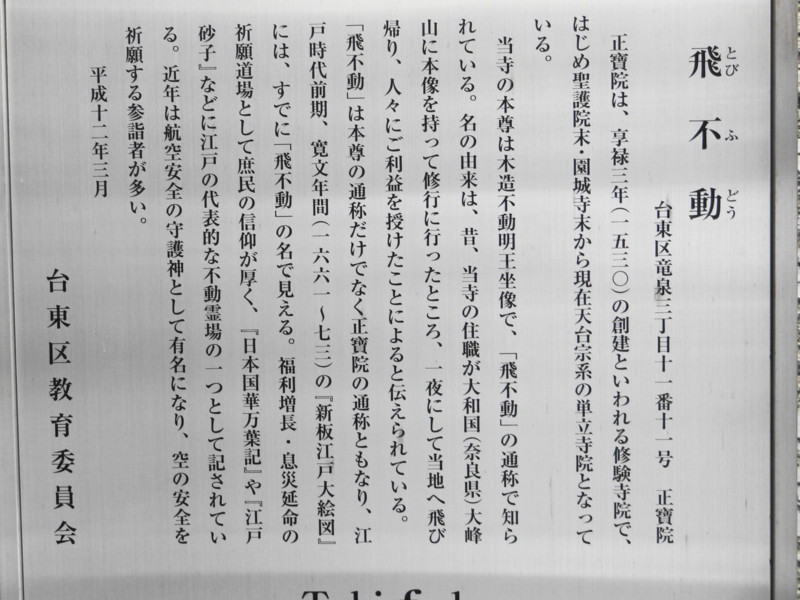 飛不動
とびふどう
台東区竜泉三丁目十一番十一号　正寶院
正寶院は、享禄三年（一五三〇）の創建といわれる修験寺院で、
はじめ聖護院末・園城寺末から現在天台宗系の単立寺院となって
いる。
当寺の本尊は木造不動明王坐像で、「飛不動」の通称で知ら
れている。名の由来は、昔、当寺の住職が大和国（奈良県）大峰
山に本像を持って修行に行ったところ、一夜にして当地へ飛び
帰り、人々にご利益を授けたことによると伝えられている。
「飛不動」は本尊の通称だけでなく正寶院の通称ともなり、江
戸時代前期、寛文年間（一六六一〜七三）の『新板江戸大絵図』
には、すでに「飛不動」の名で見える。福利増長・息災延命の
祈願道場として庶民の信仰が厚く、『日本国華万葉記』や『江戸
砂子』などに江戸の代表的な不動霊場の一つとして記されてい
る。近年は航空安全の守護神として有名になり、空の安全を
祈願する参詣者が多い。
平成十二年三月
台東区教育委員会